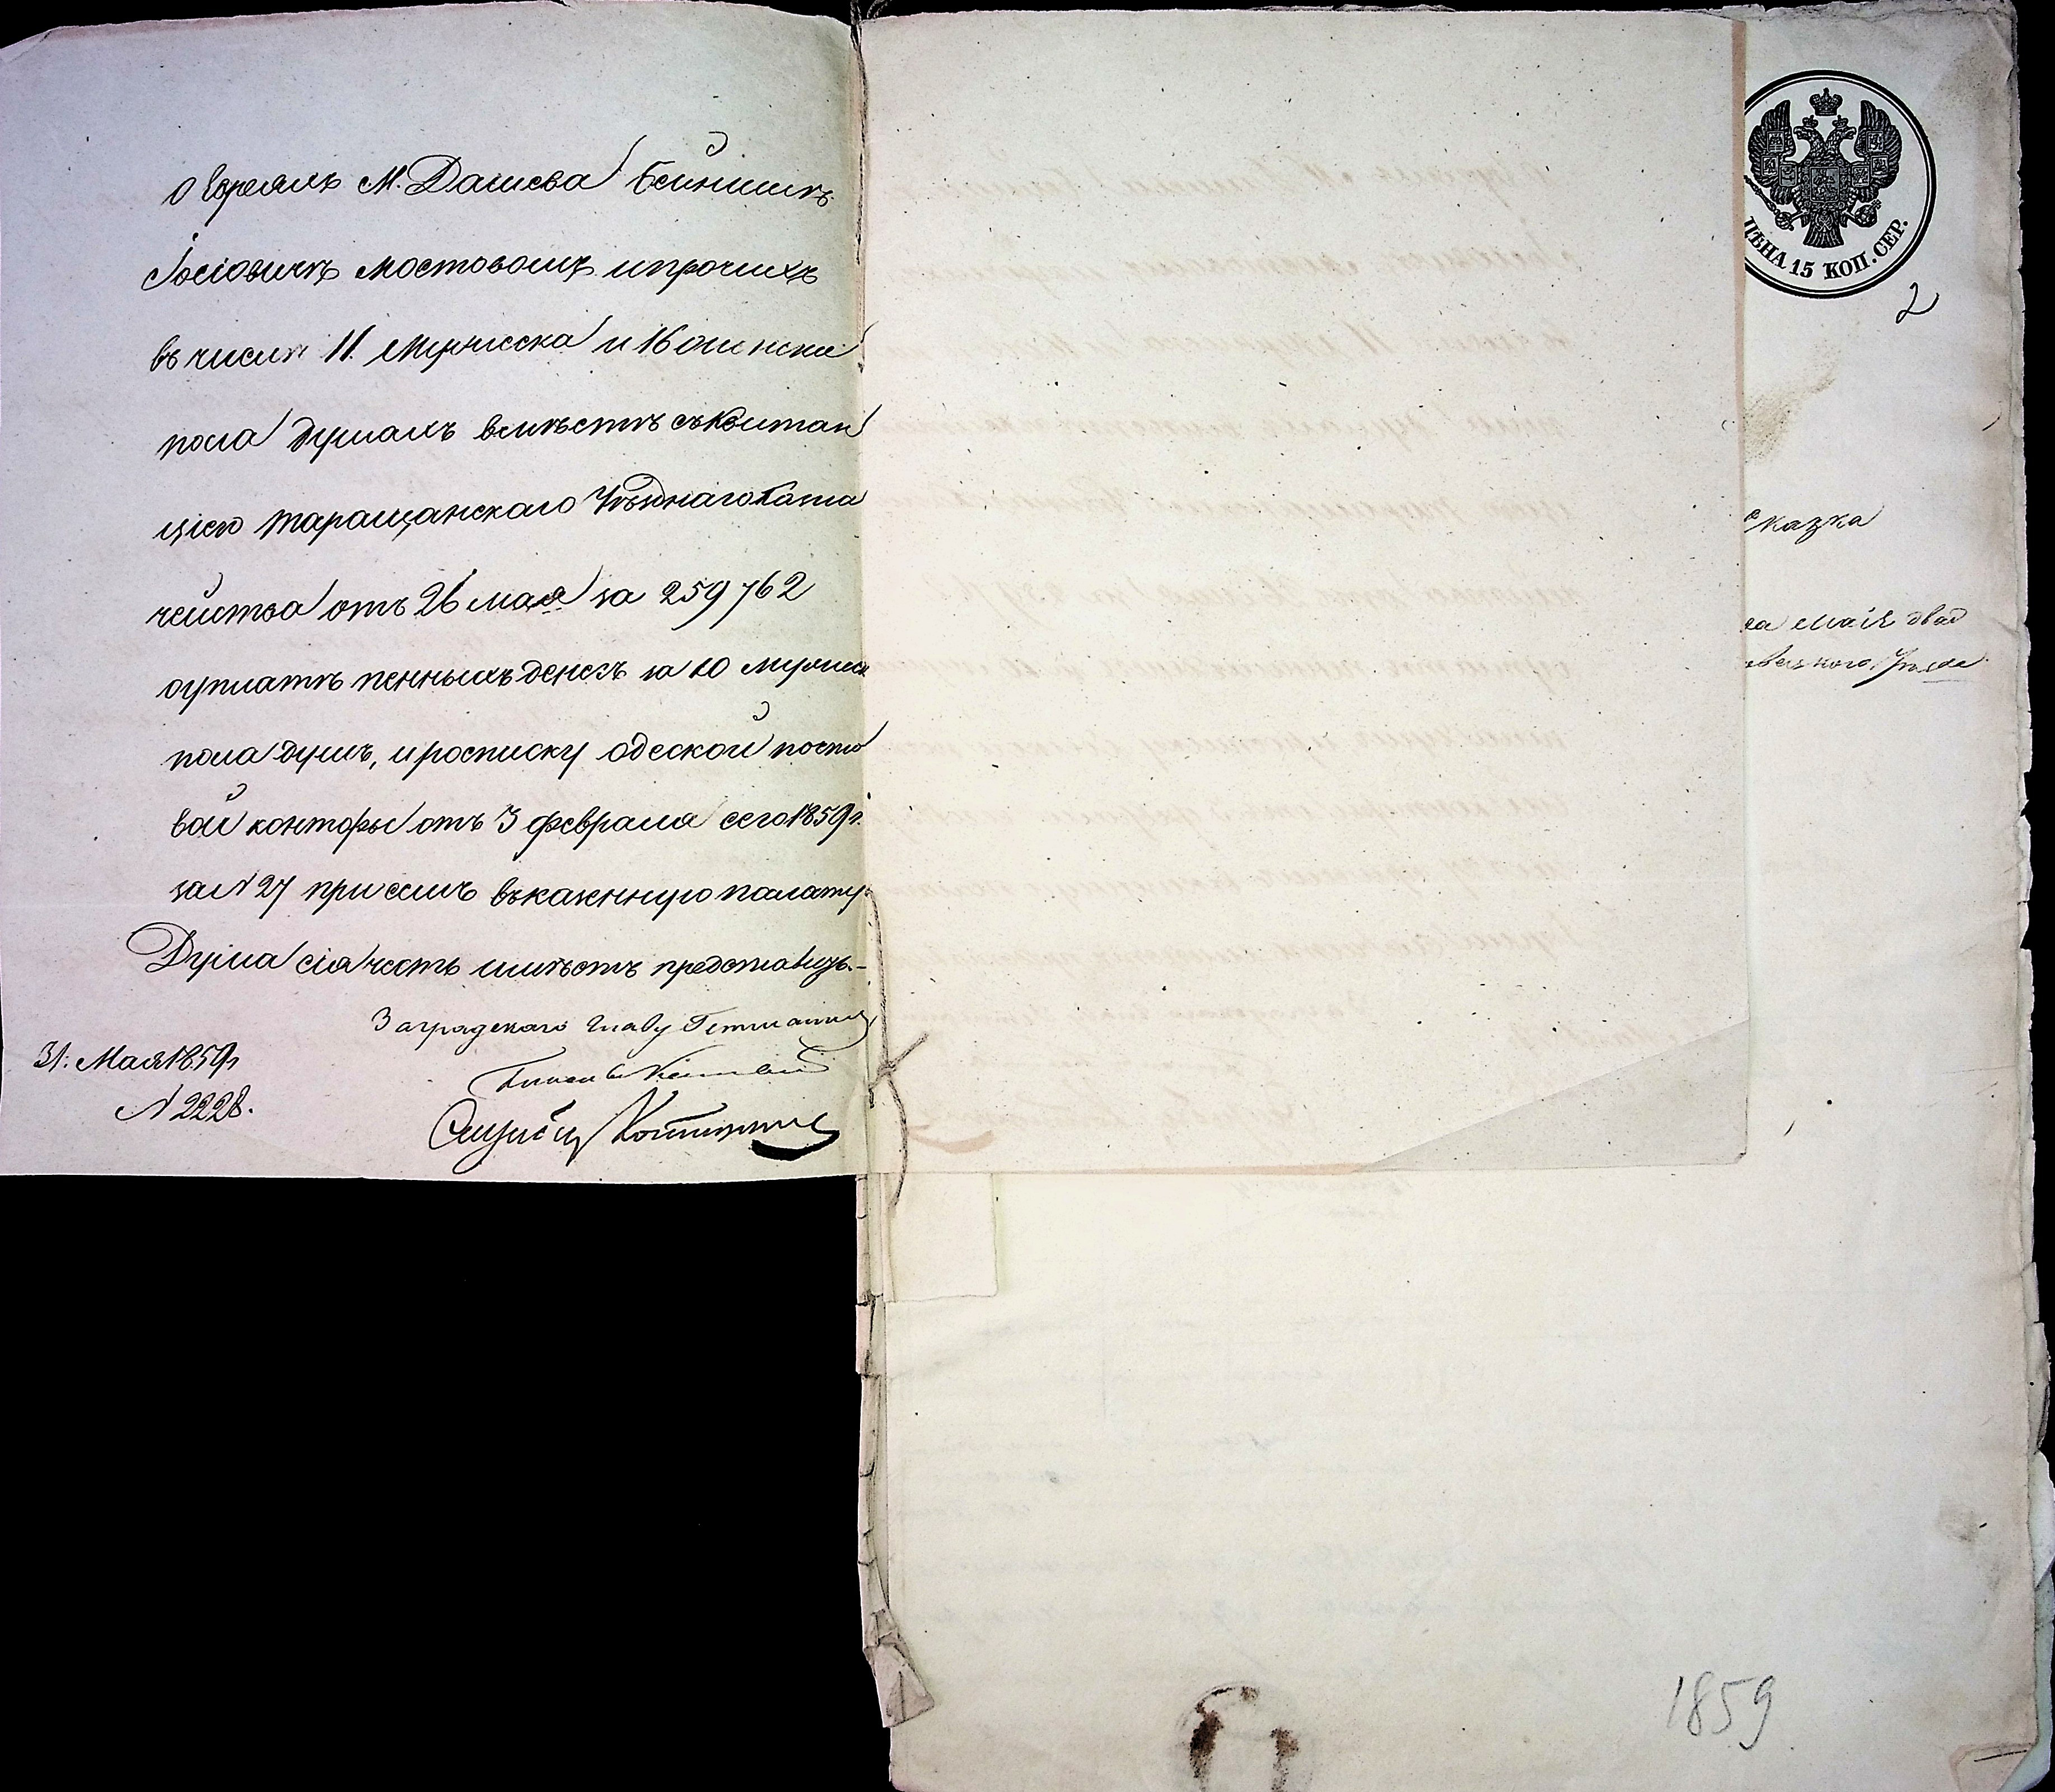 о Евреяхъ М. Дашева Бейнишъ
Іосіовичъ Мостовомъ и прочихъ
въ числѣ 11. мужеска и 16 женска
пола душахъ вмѣстѣ съ Квитан
ціею Таращанскаго Уѣзднаго Казна
чейства отъ 26 мая за 259762
о уплатѣ пенныхъ денегъ за 10 мужеск
пола душъ, и росписку одеской почто
вой конторы отъ 3 февраля сего 1859 г.
за N 27 при семъ въ казенную палату
Дума сія честь имѣетъ представить.-
За градскаго Главу
31. Мая 1859 г
N 2228.
ЦѢНА 15 КОП. СЕР.
2
сказка
мая два
Уѣзда
1859